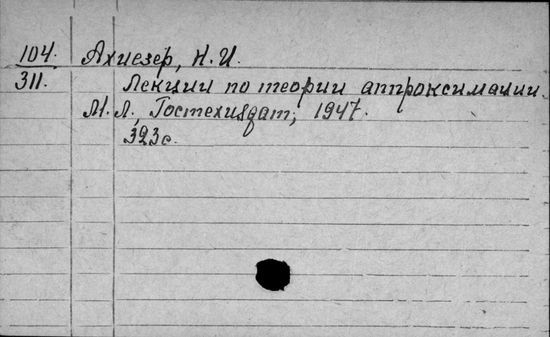 104. Ахиезер, Н. И.
311. Лекции по теории аппроксимации.
М. Л, Гостехиздат, 1947.
323 с.